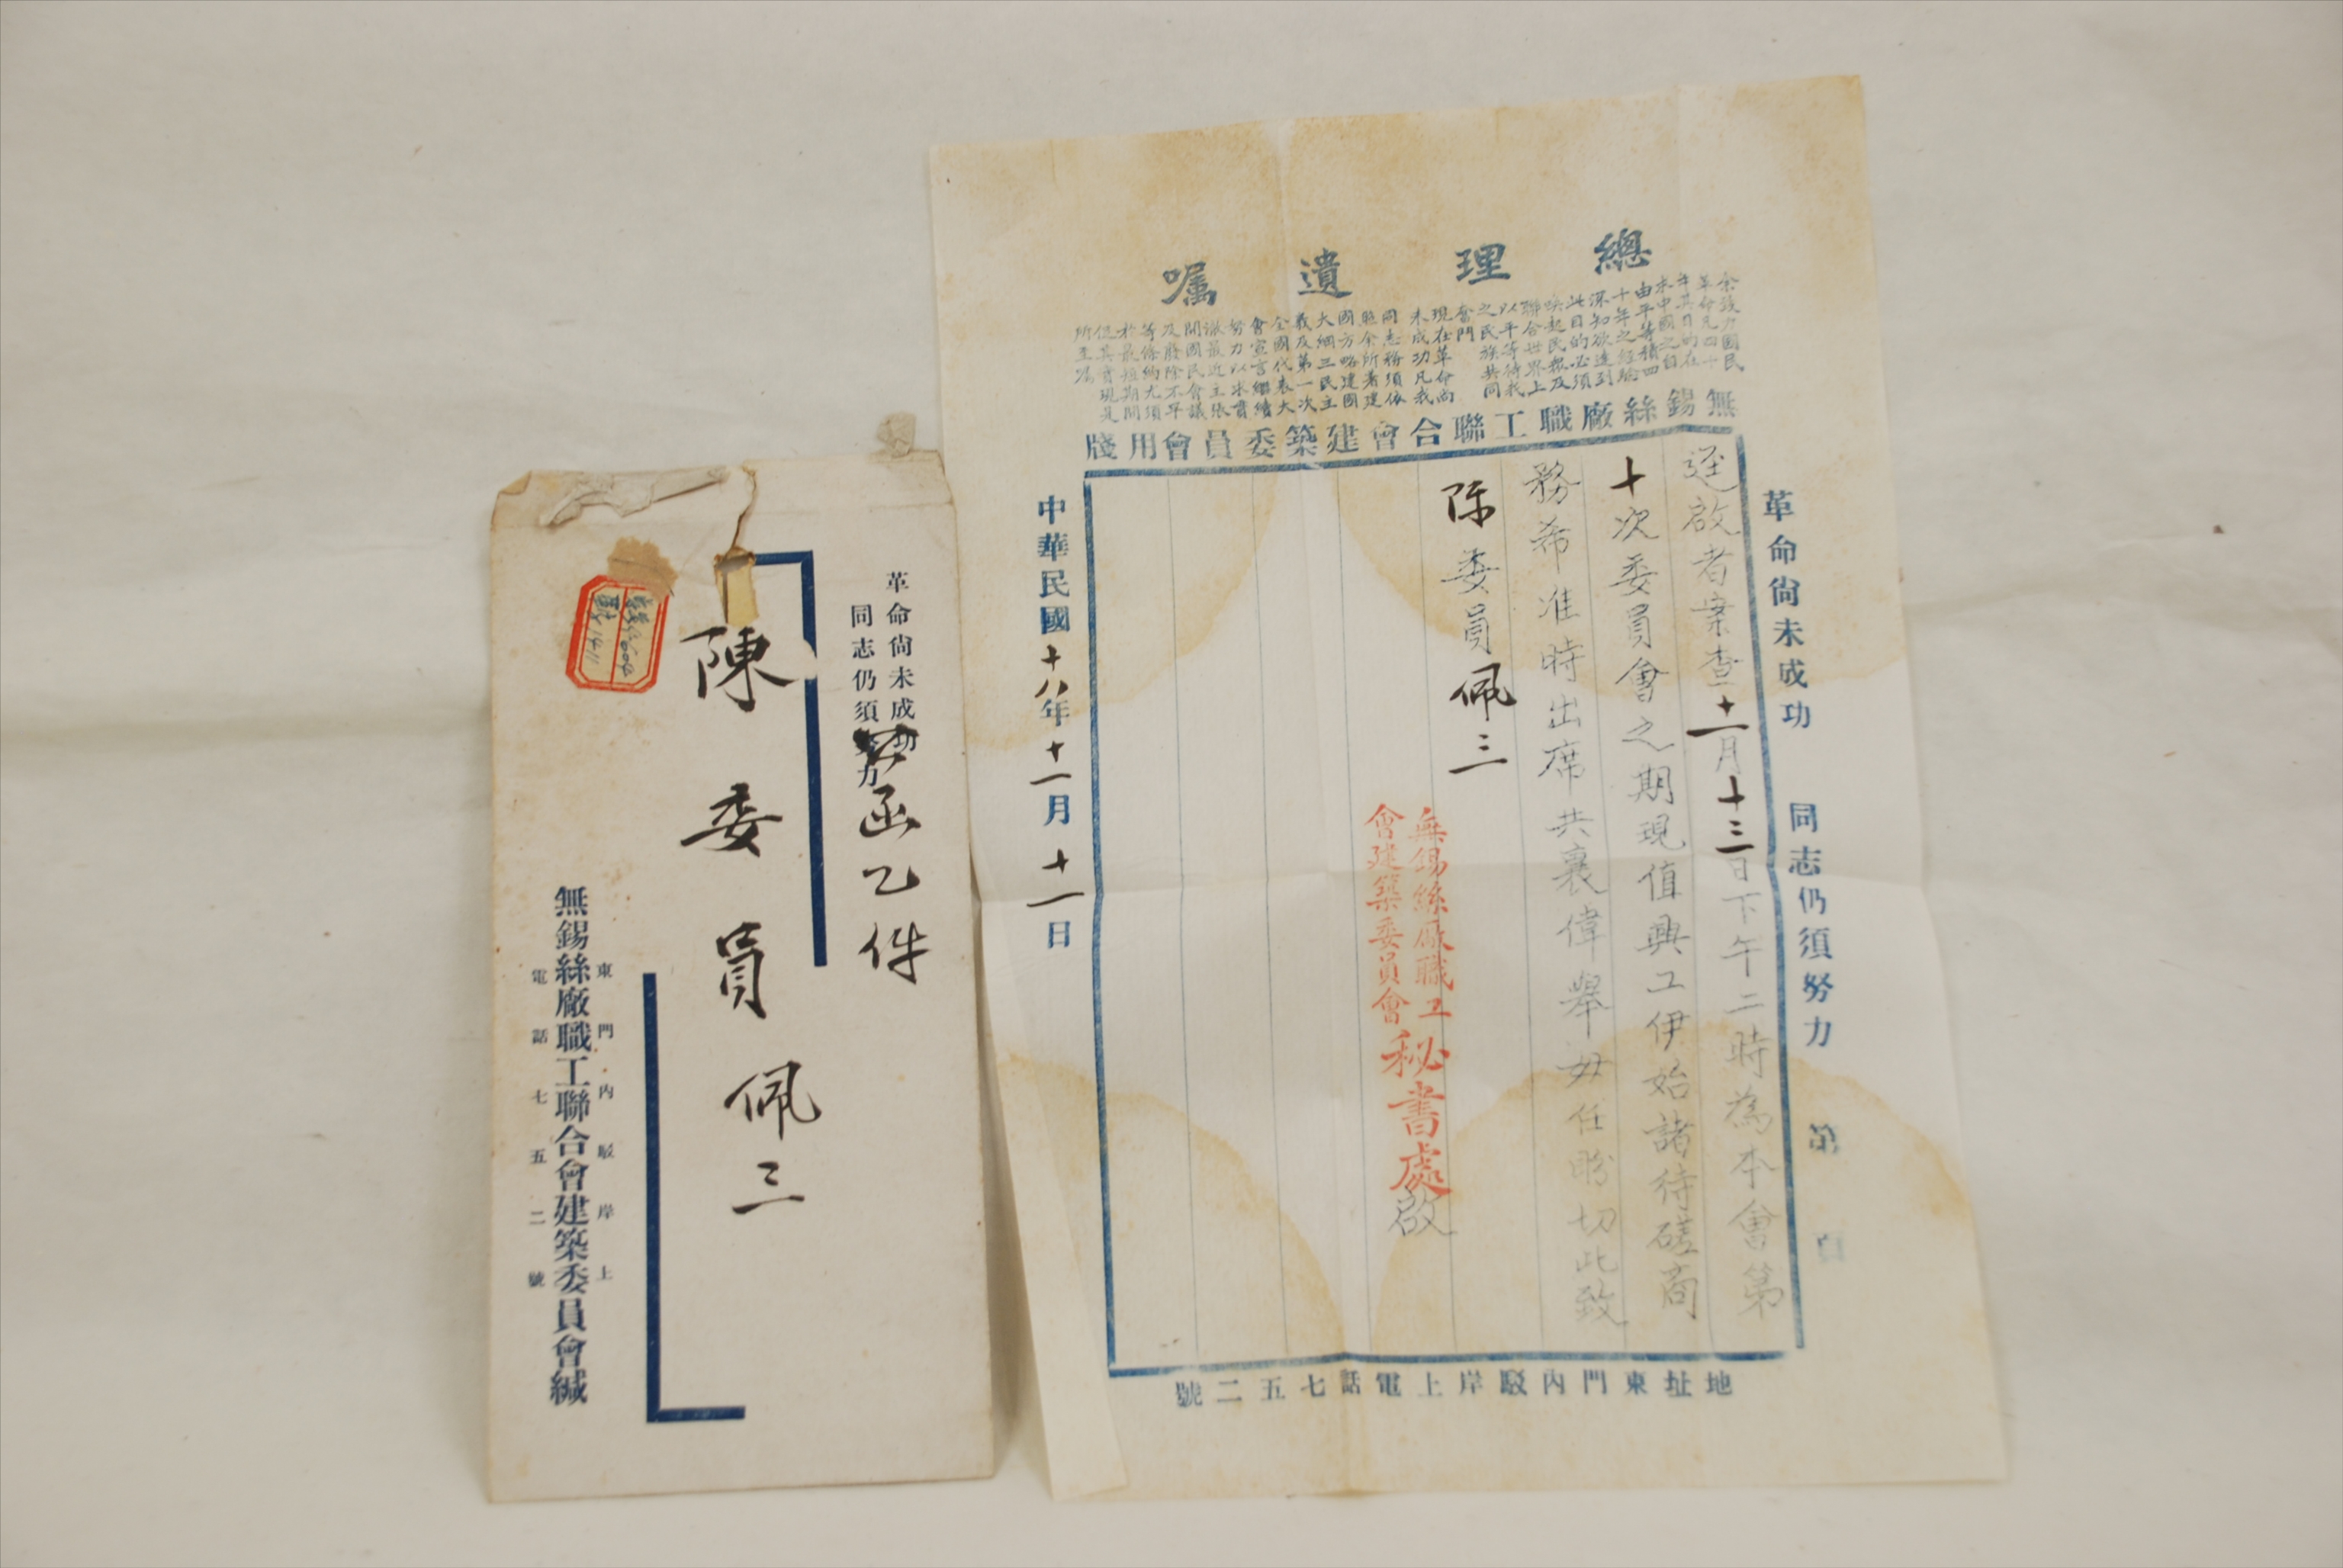 革命尚未成功
同志仍須努力
公函乙件
陳委員佩三
東門內駁岸上
無錫絲廠職工聯合會建築委員會緘
電話七五二號
總理遺囑
余致力國民
革命凡四十
年其目的在
求中國之自
由平等積四
十年之經驗
深知欲達到
此目的必須
喚起民眾及
聯合世界上
以平等待我
之民族共同
奮鬥
現在革命尚
未成功凡我
同志務須依
照余所著建
國方略建國
大綱三民主
義及第一次
全國代表大
會宣言繼續
努力以求貫
澈最近主張
開國民會議
及廢除不平
等條約尤須
於最短期間
促其實現是
所至囑
無錫絲廠職工聯合會建築委員會用牋
革命尚未成功 同志仍須努力 第 頁
逕啟者案查十一月十三日下午二時為本會第
十次委員會之期現值興工伊始諸待磋商
務希准時出席共襄偉舉毋任盼切此致
陈委員佩三
無錫絲厰職工
會建築委員會
秘書處啟
中華民國十八年十一月十一日
地址東門內駁岸上電話七五二號